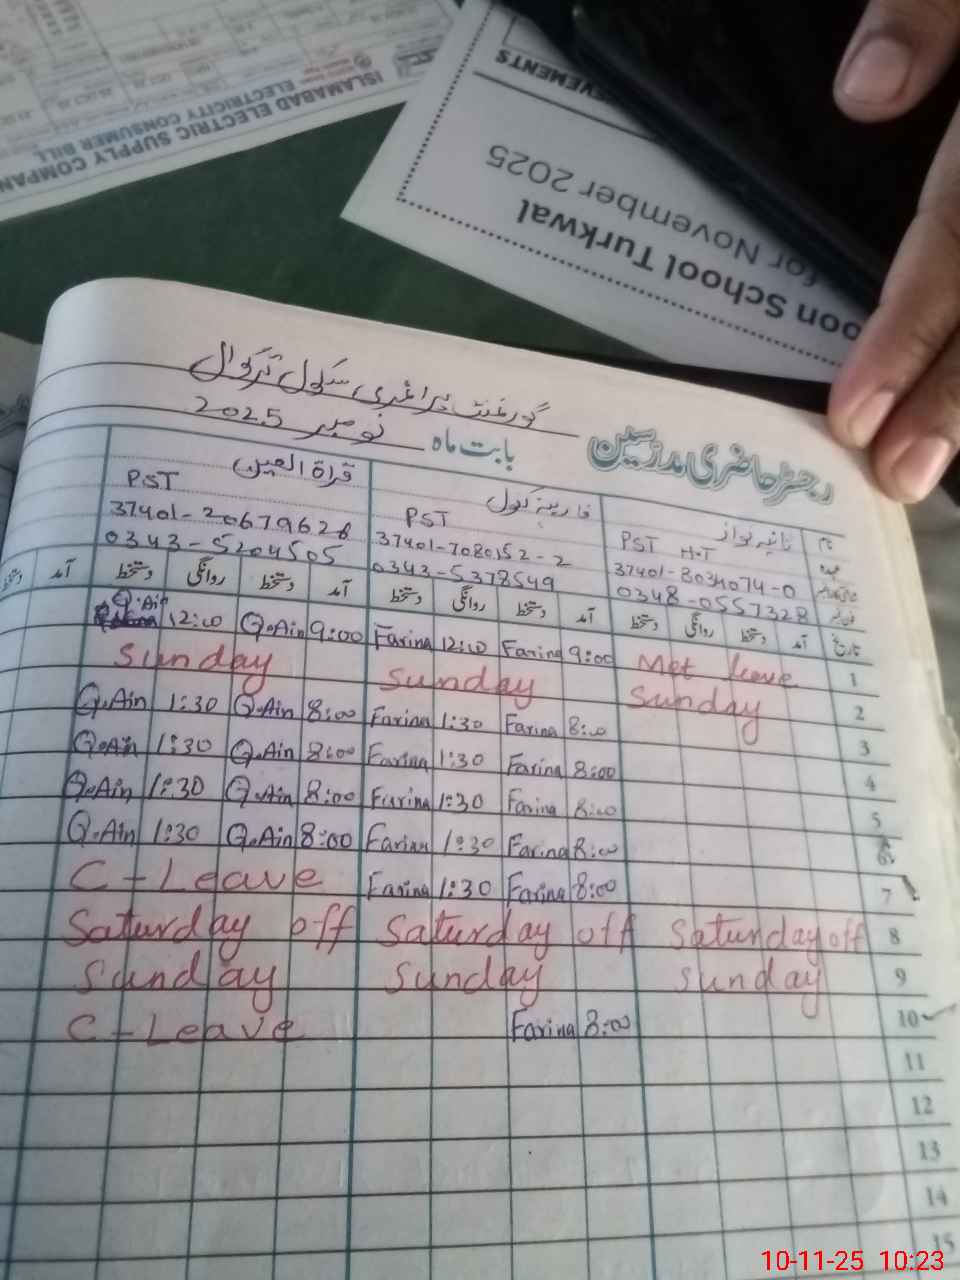 ISLAMABAD ELECTRIC SUPPLY COMPANY
ELECTRICITY CONSUMER BILL
EVEMENTS
oon School Turkwal
for November 2025
رجسٹر حاضری مدرسین گورنمنٹ پرائمری سکول ترکوال
بابت ماہ نومبر 2025
نام
PST H.T
37401-8034074-0
0348-0557328
فارینہ کنول
PST
37401-7080152-2
0343-5378549
قراة العین
PST
37401-20679628
0343-5204505
تاریخ آمد دستخط روانگی دستخط آمد دستخط روانگی دستخط آمد دستخط روانگی دستخط آمد دستخط
1 Met leave 9:00 Farina 12:00 Farina 9:00 Q.Ain 12:00 Q.Ain
2 Sunday Sunday Sunday
3 8:00 Farina 1:30 Farina 8:00 Q.Ain 1:30 Q.Ain
4 8:00 Farina 1:30 Farina 8:00 Q.Ain 1:30 Q.Ain
5 8:00 Farina 1:30 Farina 8:00 Q.Ain 1:30 Q.Ain
6 8:00 Farina 1:30 Farina 8:00 Q.Ain 1:30 Q.Ain
7 8:00 Farina 1:30 Farina C-Leave
8 Saturday off Saturday off Saturday off
9 Sunday Sunday Sunday
10 8:00 Farina C-Leave
11
12
13
14
15
10-11-25 10:23